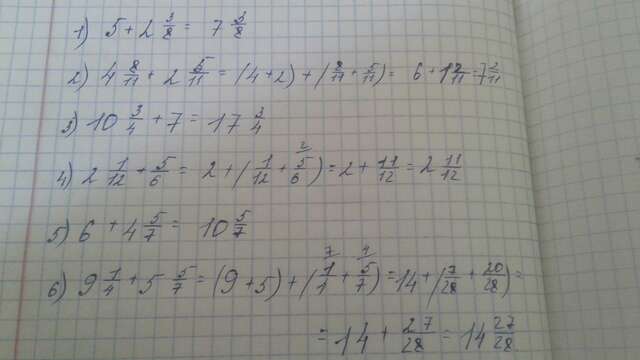 1) 5 + 2 3/8 = 7 3/8
2) 4 8/11 + 2 5/11 = (4+2) + (8/11 + 5/11) = 6 + 12/11 = 7 2/11
3) 10 3/4 + 7 = 17 3/4
4) 2 1/12 + 5/6 = 2 + (1/12 + 5/6 ²) = 2 + 11/12 = 2 11/12
5) 6 + 4 5/7 = 10 5/7
6) 9 1/4 + 5 5/7 = (9+5) + (1/4 ⁷ + 5/7 ⁴) = 14 + (7/28 + 20/28) =
= 14 + 27/28 = 14 27/28